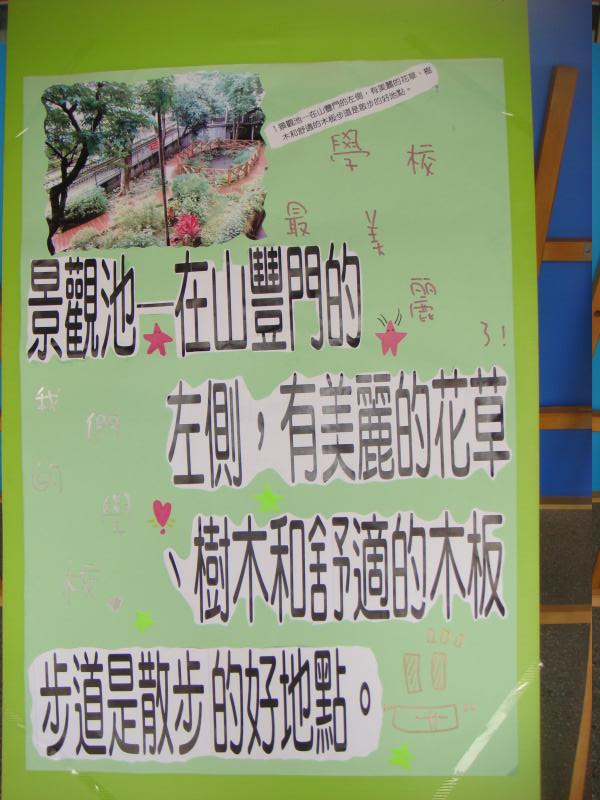 !景觀池—在山豐門的左側，有美麗的花草、樹
木和舒適的木板步道是散步的好地點。
學校
最美麗
了!
景觀池—在山豐門的
左側，有美麗的花草
、樹木和舒適的木板
步道是散步的好地點。
我們的學校